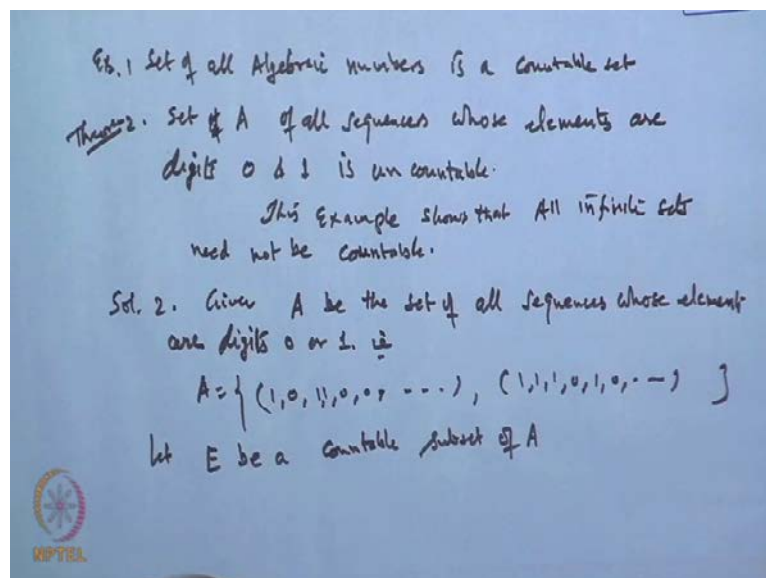 Ex. 1 Set of all Algebraic numbers is a countable set
Theorem 2. Set A of all sequences whose elements are
digits 0 & 1 is uncountable.
This Example shows that All infinite sets
need not be countable.
Sol. 2. Given A be the set of all sequences whose element
are digits 0 or 1. i.e
A = { (1,0,1,1,0,0, ---), (1,1,1,0,1,0,--) }
Let E be a countable subset of A
NPTEL